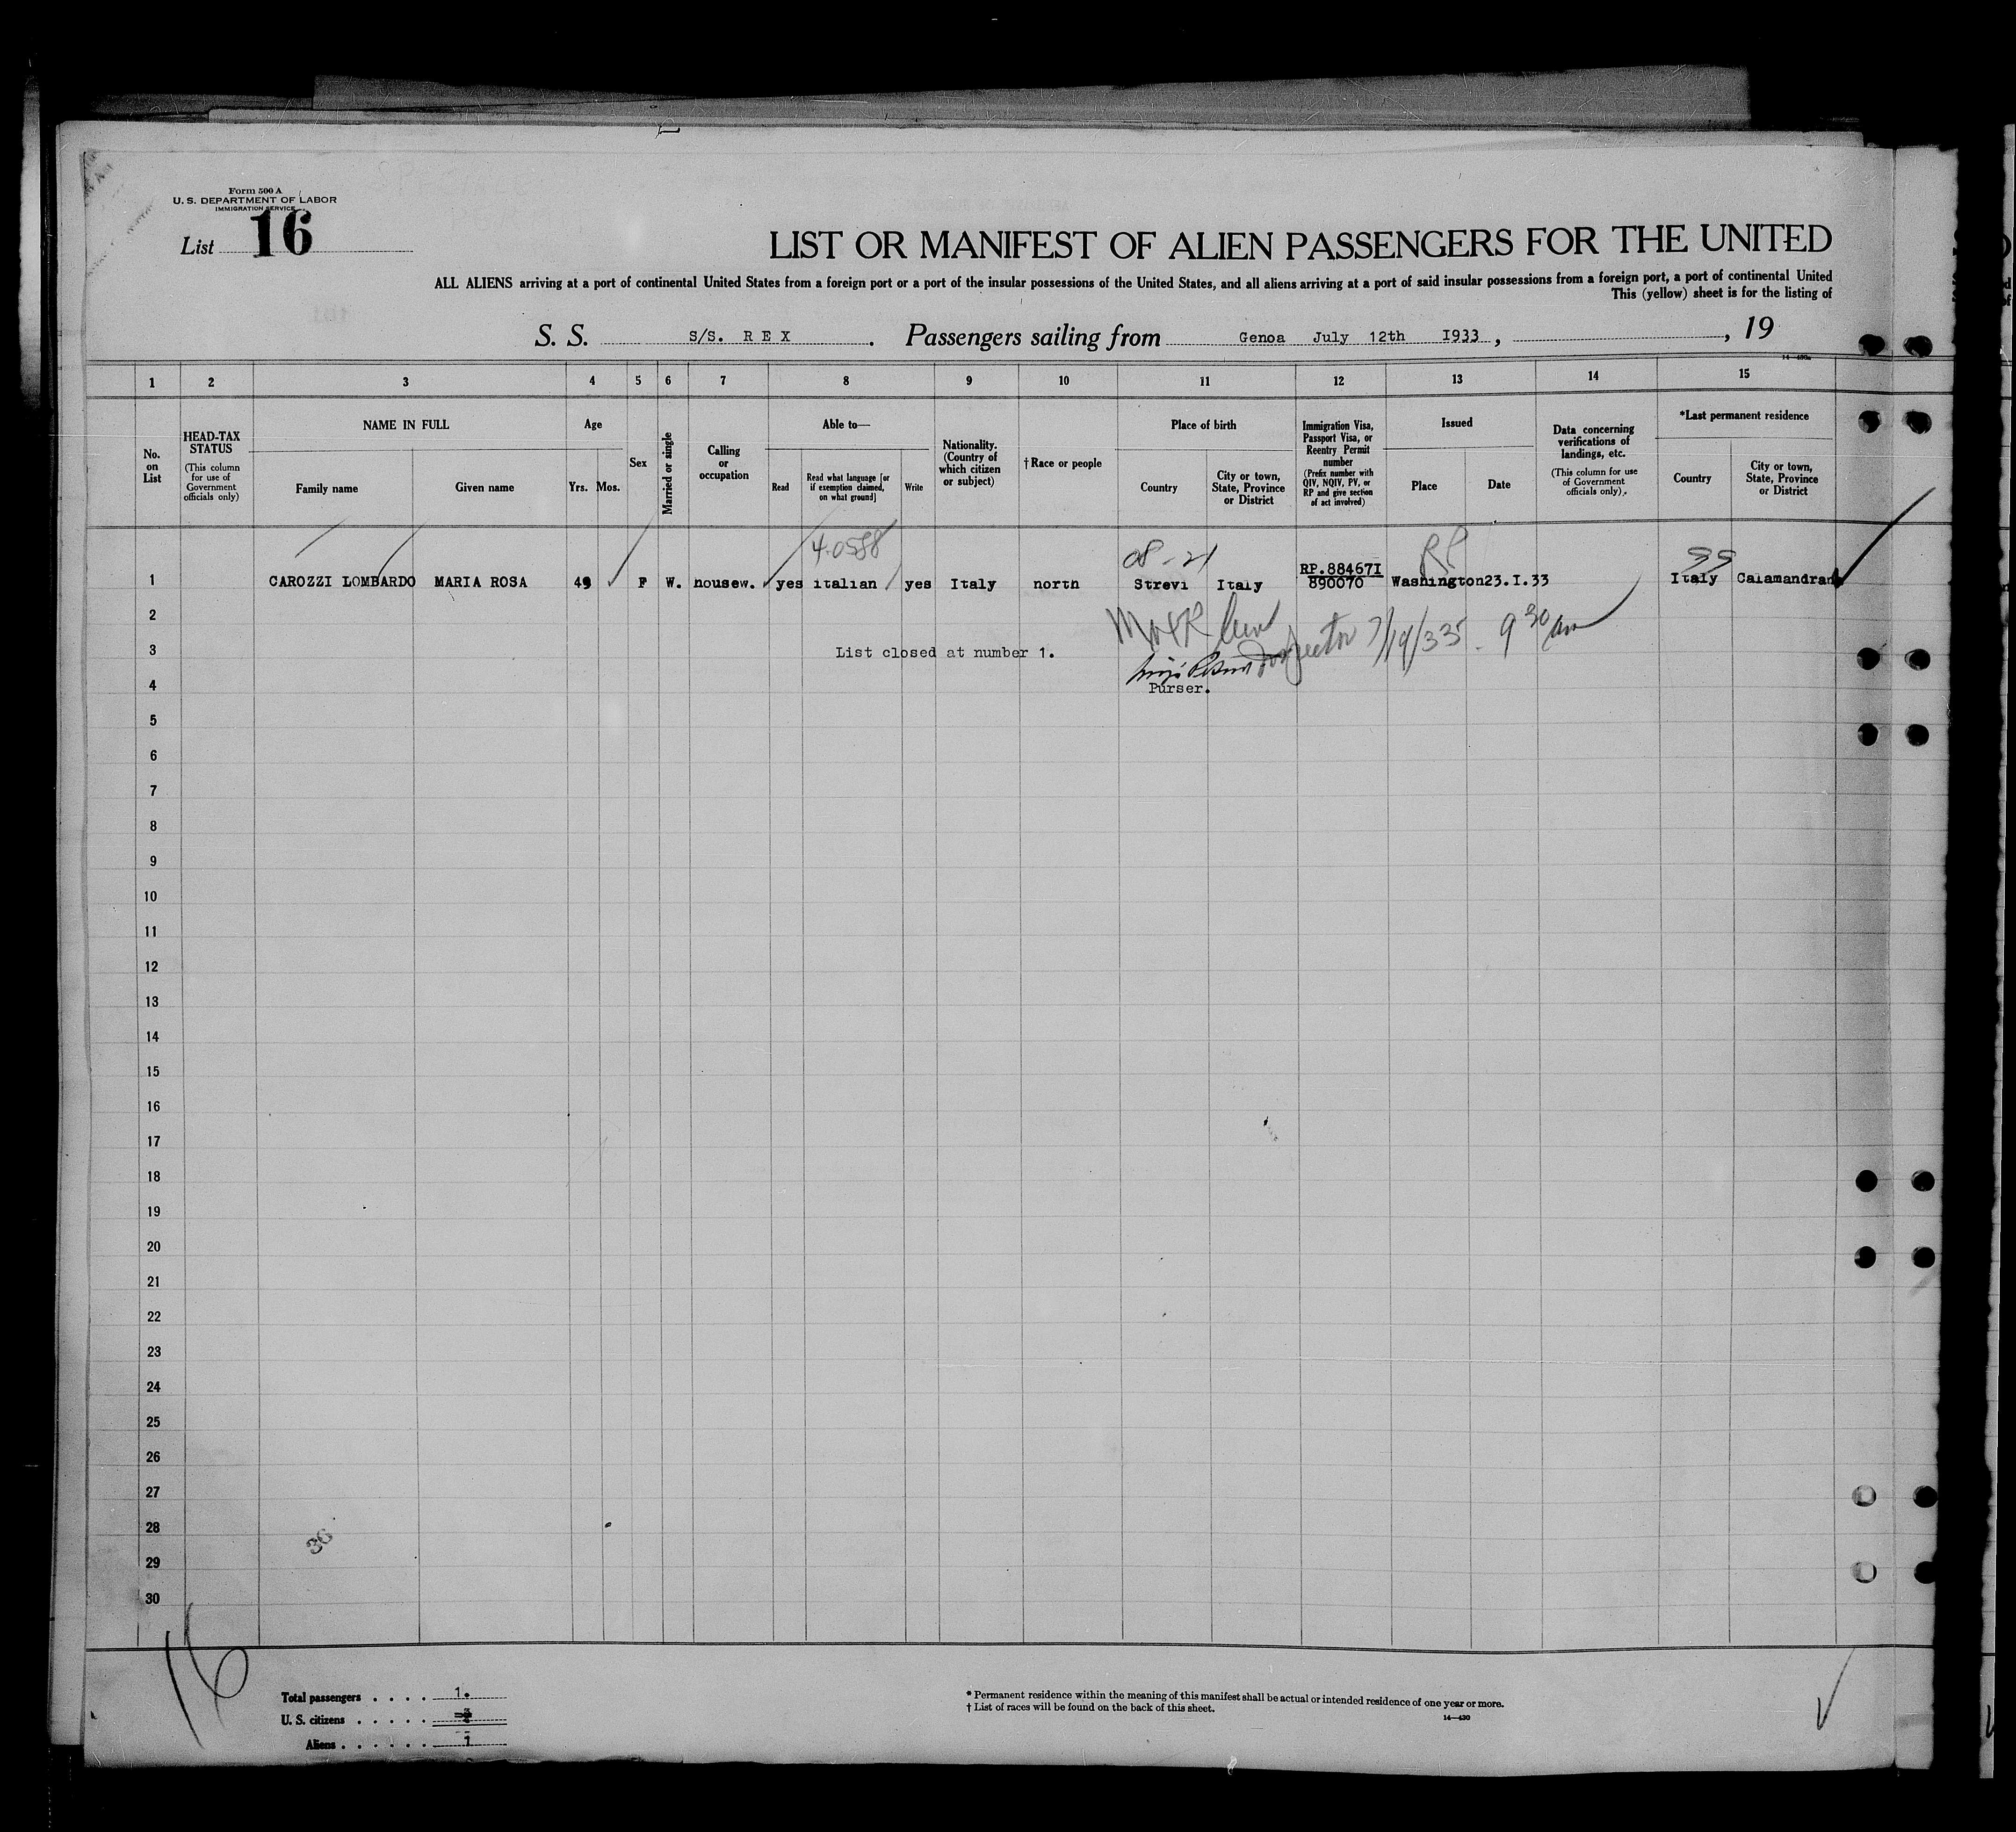 Form 500 A
U. S. DEPARTMENT OF LABOR
IMMIGRATION SERVICE
List 16
LIST OR MANIFEST OF ALIEN PASSENGERS FOR THE UNITED
ALL ALIENS arriving at a port of continental United States from a foreign port or a port of the insular possessions of the United States, and all aliens arriving at a port of said insular possessions from a foreign port, a port of continental United
This (yellow) sheet is for the listing of
S. S. S/S. R E X . Passengers sailing from Genoa July 12th I933 , , 19
14—430a
1 2 3 4 5 6 7 8 9 10 11 12 13 14 15
No. on List
HEAD-TAX STATUS
(This column for use of Government officials only)
NAME IN FULL
Family name Given name
Age
Yrs. Mos.
Sex
Married or single
Calling or occupation
Able to—
Read
Read what language [or if exemption claimed, on what ground]
Write
Nationality. (Country of which citizen or subject)
†Race or people
Place of birth
Country
City or town, State, Province or District
Immigration Visa, Passport Visa, or Reentry Permit number
(Prefix number with QIV, NQIV, PV, or RP and give section of act involved)
Issued
Place Date
Data concerning verifications of landings, etc.
(This column for use of Government officials only)
*Last permanent residence
Country
City or town, State, Province or District
4-0588 RP
RP.88467I
1 CAROZZI LOMBARDO MARIA ROSA F W. housew. yes italian yes Italy north Strevi Italy 890070 Washington 23.I.33 Italy Calamandrana
2
Inspector 9 30 am
3 List closed at number 1.
4 Purser.
5
6
7
8
9
10
11
12
13
14
15
16
17
18
19
20
21
22
23
24
25
26
27
28
29
30
36
16
Total passengers . . . . 1.
U. S. citizens . . . . .
Aliens . . . . . . 1
* Permanent residence within the meaning of this manifest shall be actual or intended residence of one year or more.
† List of races will be found on the back of this sheet.
14—430